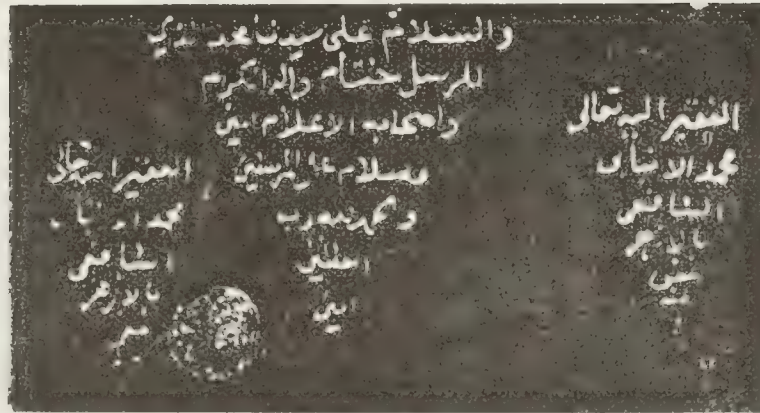 والسلام على سيدنا محمد الذي
للرسل ختام واله الكرام
واصحابه الاعلام امين
وسلام على المرسلين
والحمد لله رب
العالمين
امين
الفقير اليه تعالى
محمد الانبابى
الشافعى
بالازهر
عنى
الفقير اليه تعالى
محمد
الشافعى
بالازهر